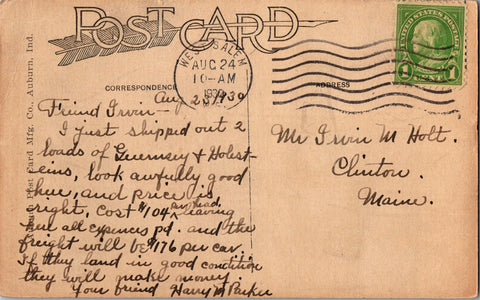 POST CARD
WEST SALEM
AUG 24
10-AM
1930
CORRESPONDENCE
ADDRESS
UNITED STATES POSTAGE
1 CENT 1
Post Card Mfg. Co., Auburn, Ind.
Aug 23/1930
Friend Irvin—
I just shipped out 2
loads of Guernsey & Holst-
eins, look awfully good
here, and price is
right, cost $104 per head, leaving
here all expences pd. and the
freight will be $176 per car.
If they land in good condition
they will make money.
Your friend Harry M Parker
Mr Irvin M Holt.
Clinton,
Maine.